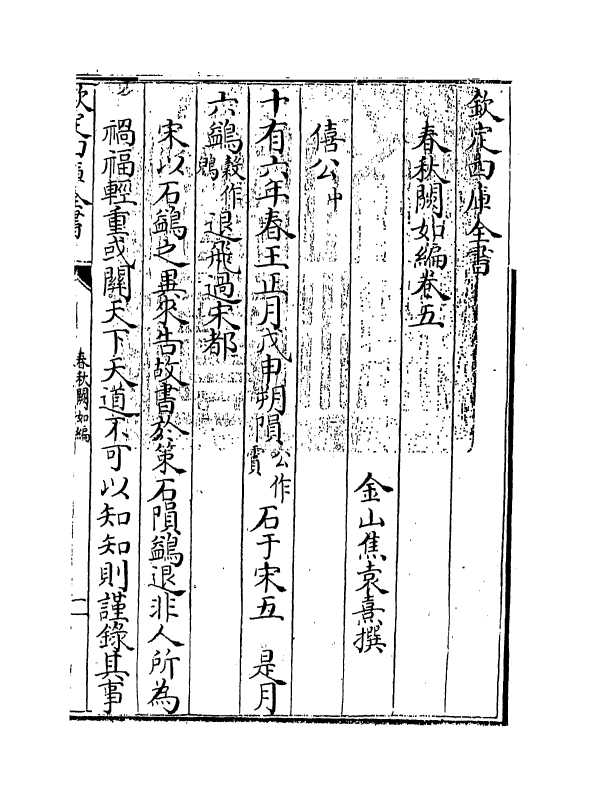 欽定四庫全書
春秋闕如編卷五
金山焦袁熹撰
僖公中
十有六年春王正月戊申朔隕公作霣石于宋五　是月
六鷁穀作鶂退飛過宋都
宋以石鷁之異來告故書於策石隕鷁退非人所為
禍福輕重或關天下天道不可以知知則謹錄其事
欽定四庫全書
春秋闕如編
一